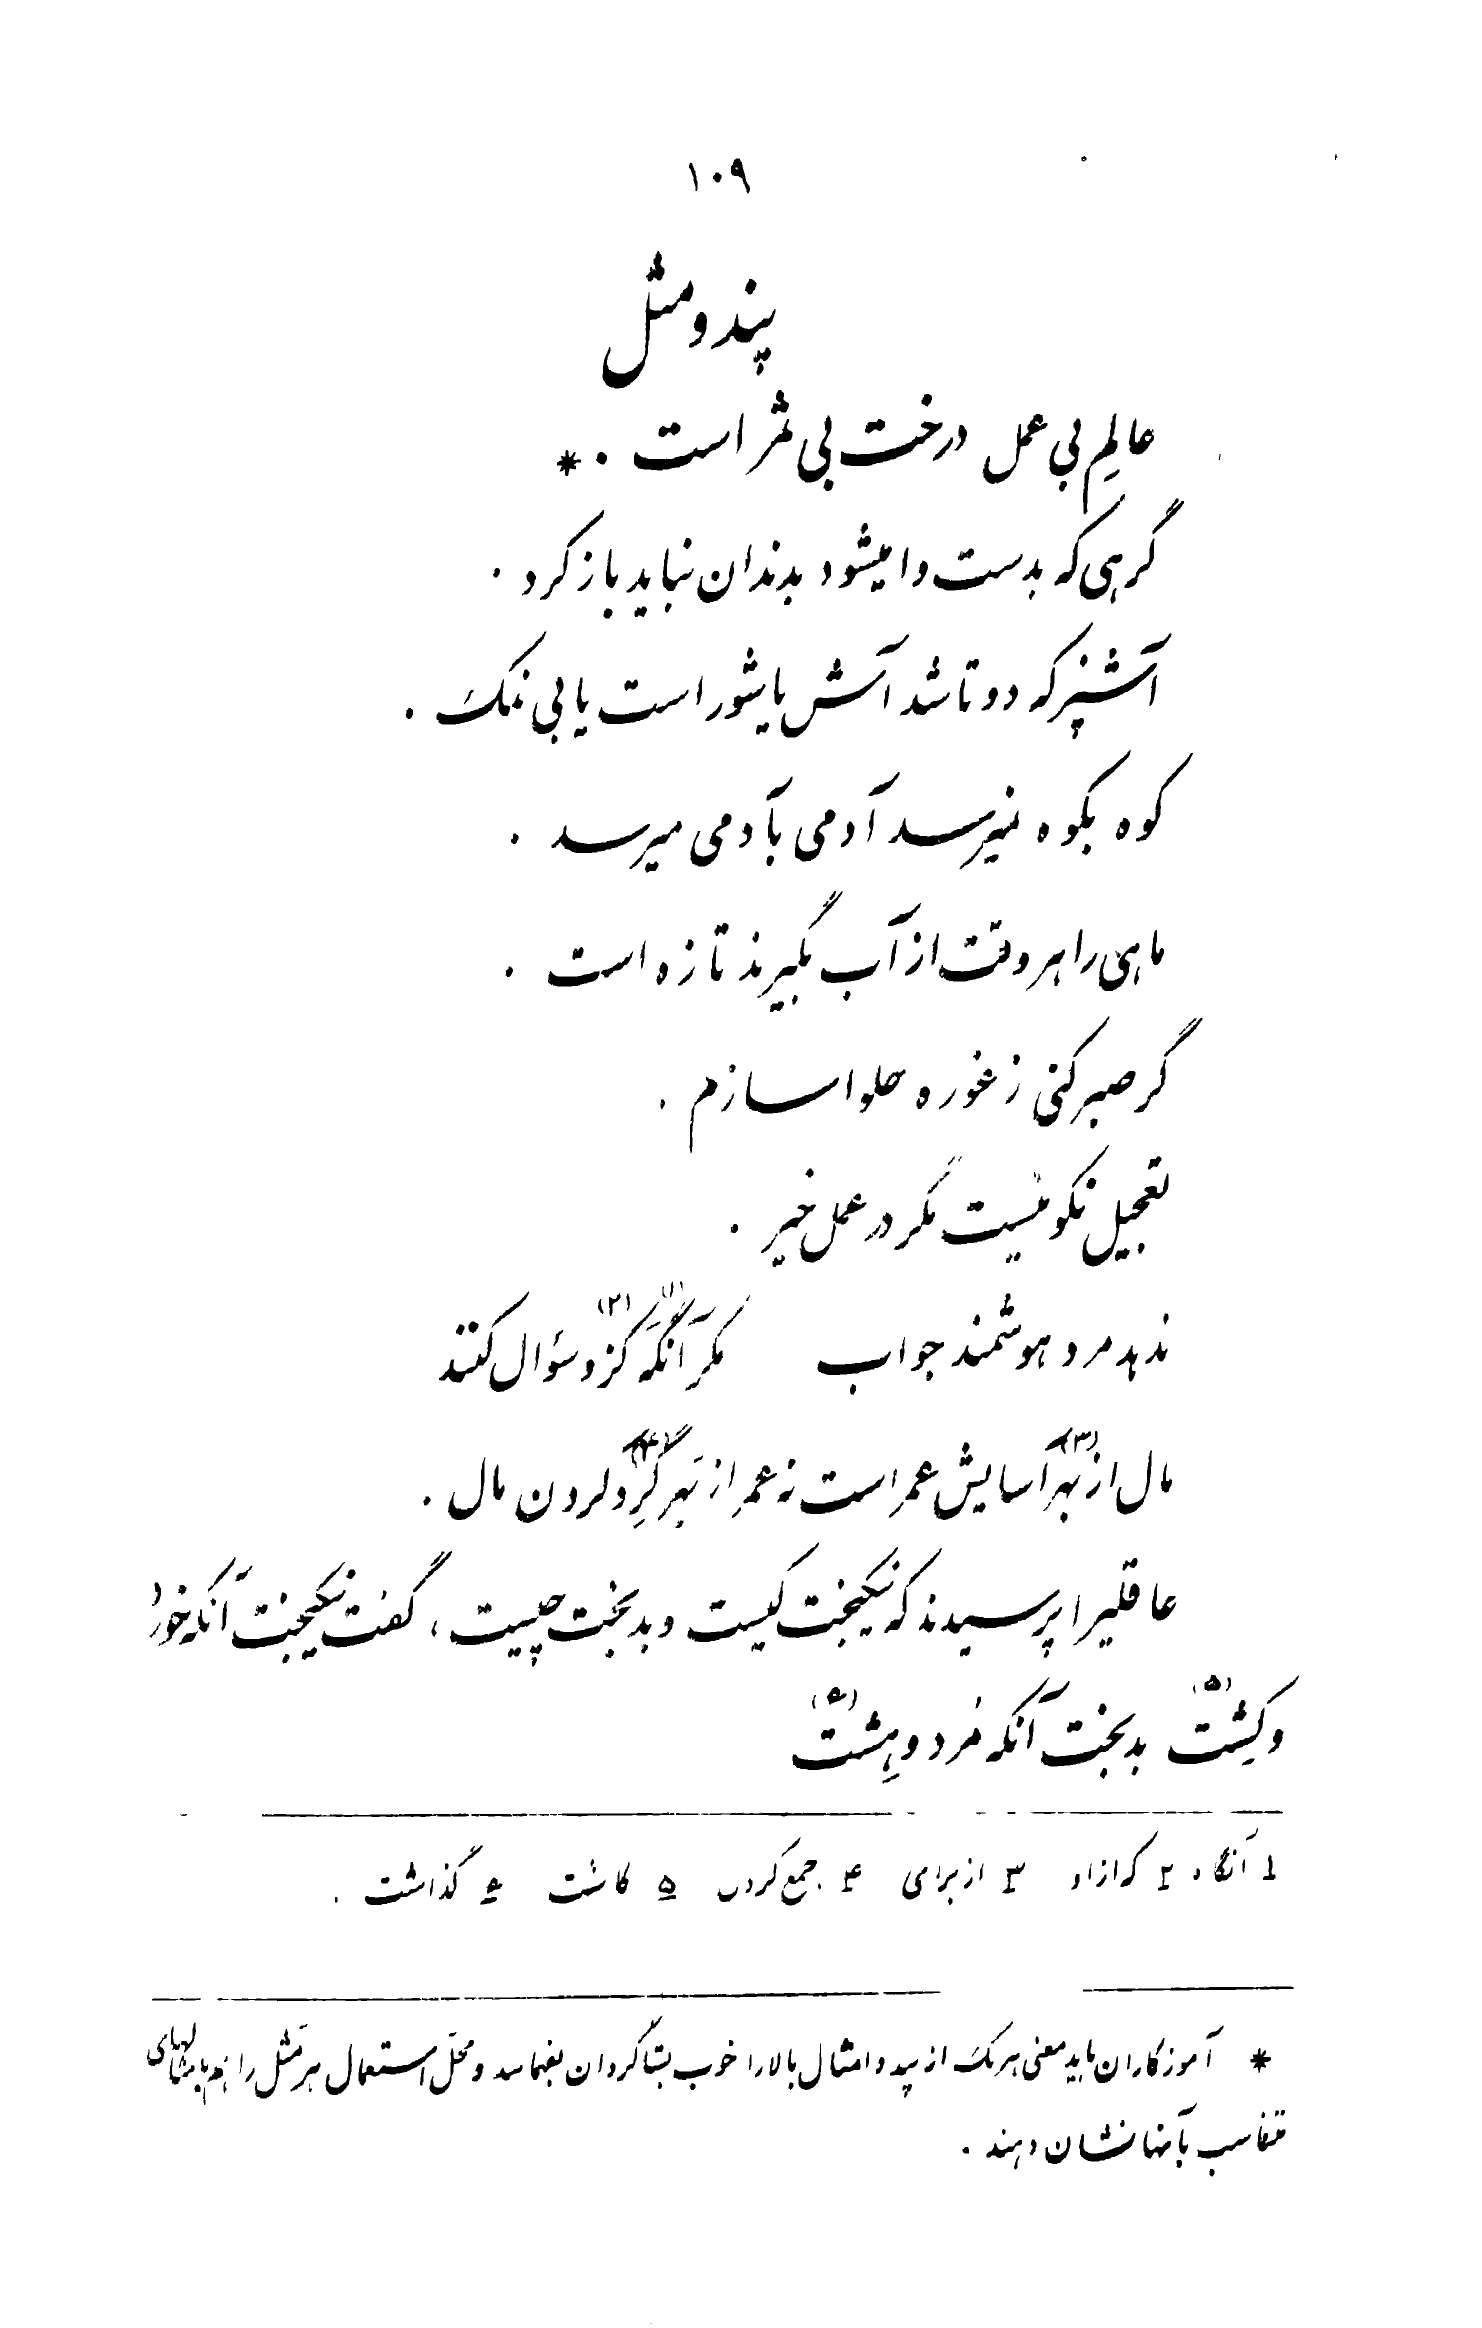 ۱۰۹
پند و مثل
عالِمِ بی عمل درخت بی ثمر است . *
گرهی که بدست وا میشود بدندان نباید باز کرد .
آشپز که دو تا شد آش یا شور است یا بی نمک .
کوه بکوه نمیرسد آدمی بآدمی میرسد .
ماهی را هر وقت از آب بگیرند تازه است .
گر صبر کنی ز غوره حلوا سازم .
تعجیل نکو نیست مگر در عمل خیر .
ندهد مرد هوشمند جواب مگر آنگه (۱) کزو (۲) سؤال کنند
مال از بهر (۳) آسایش عمر است نه عمر از بهر گِرد کردن (۴) مال .
عاقلیرا پرسیدند که نیکبخت کیست و بدبخت چیست ، گفت نیکبخت آنکه خورد
و کِشت (۵) بدبخت آنکه مُرد و هِشت (۶)
۱ آنگاه ۲ که از او ۳ از برای ۴ جمع کردن ۵ کاشت ۶ گذاشت .
* آموزگاران باید معنی هر یک از پند و امثال بالا را خوب بشاگردان بفهمانند و محل استعمال هر مَثَل را هم با مثالهای
متناسب بآنها نشان دهند .